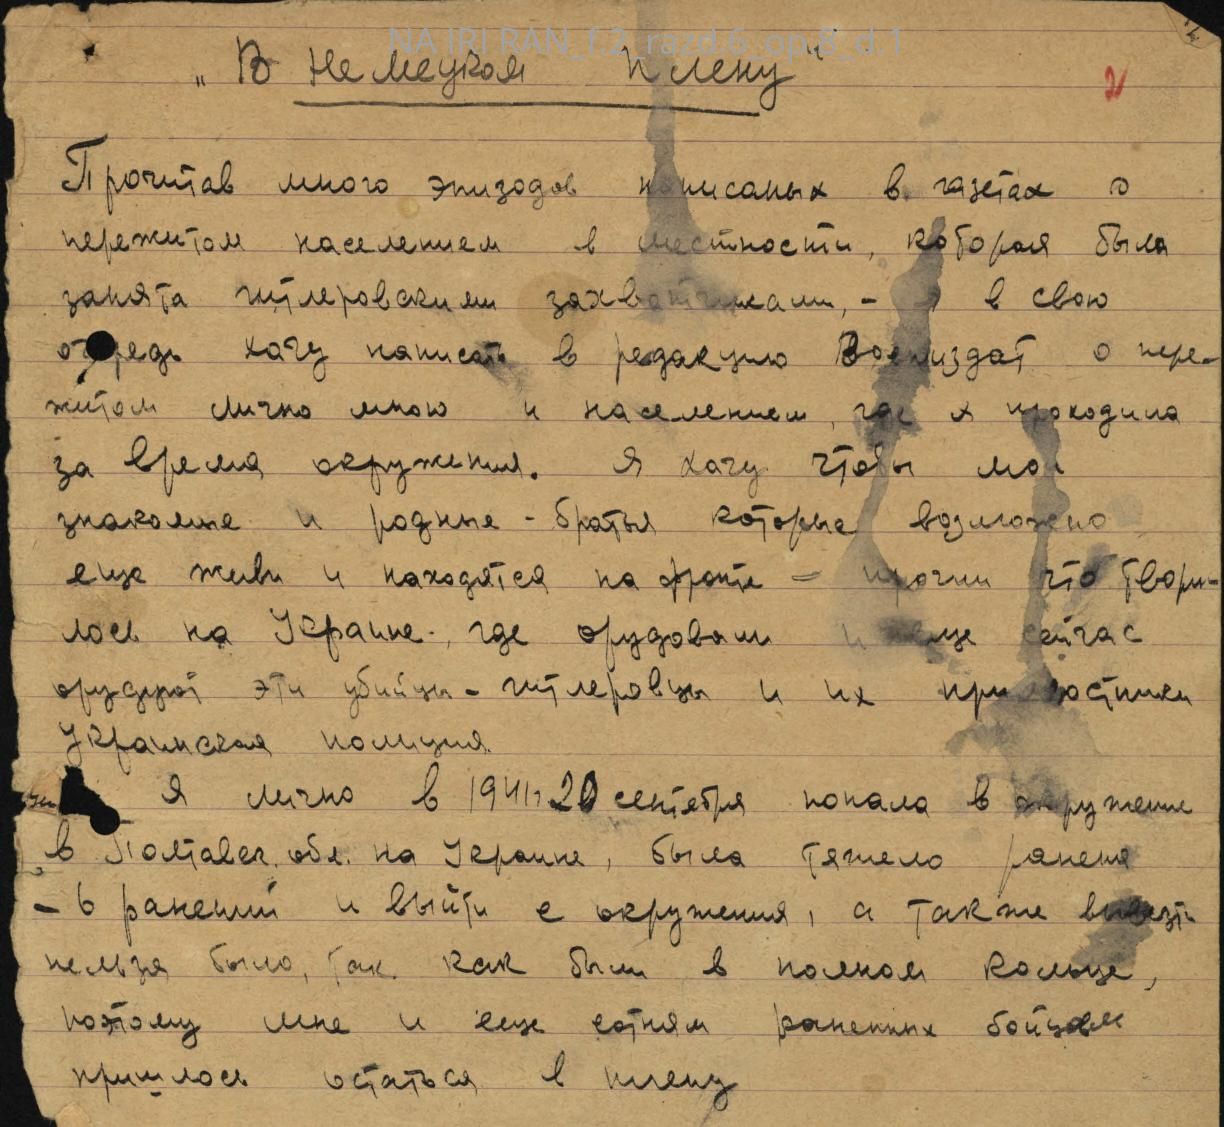 NA IRI RAN_f.2_razd.6_op.8_d.1
„В Немецком плену"
2
Прочитав много эпизодов написаных в газетах о
пережитом населением в местности, которая была
занята гитлеровскими захватчиками, – я в свою
очредь хачу написать в редакцию Воениздат о пере-
житом лично мною и населением, где я проходила
за время окружения. Я хачу чтобы мои
знакомые и родные – братья которые возможно
еще живы и находятся на фронте – прочли что твори-
лось на Украине, где орудовали и еще сейчас
орудуют эти убийцы – гитлеровцы и их прихвостники
Украинская полиция.
Я лично в 1941г 20 сентября попала в окружение
в Полтавск. обл. на Украине, была тяжело ранена
– 6 ранений и выйти с окружения, а также вывезти
нельзя было, так как были в полном кольце,
поэтому мне и еще сотням раненных бойцам
пришлось остаться в плену